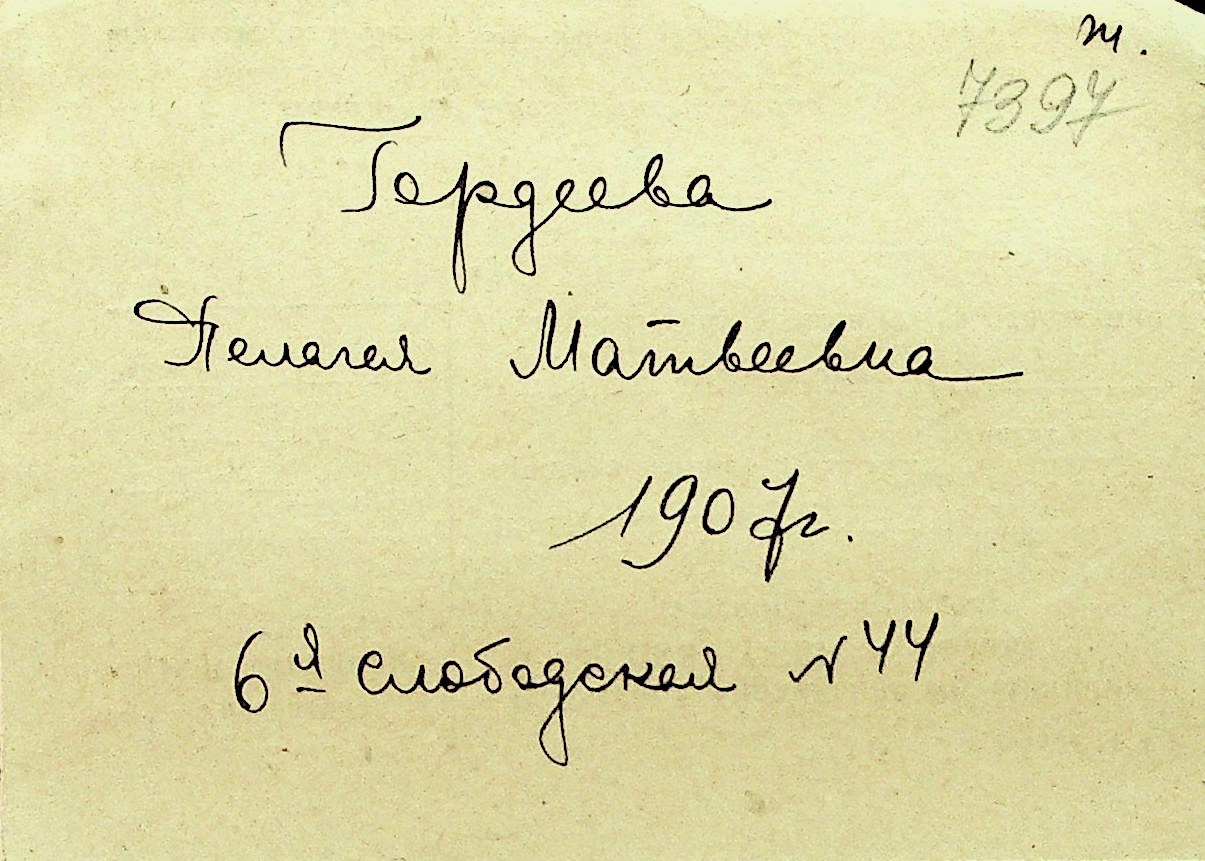 т.
7397
Гордеева
Пелагея Матвеевна
1907 г.
6 я слободская N 44